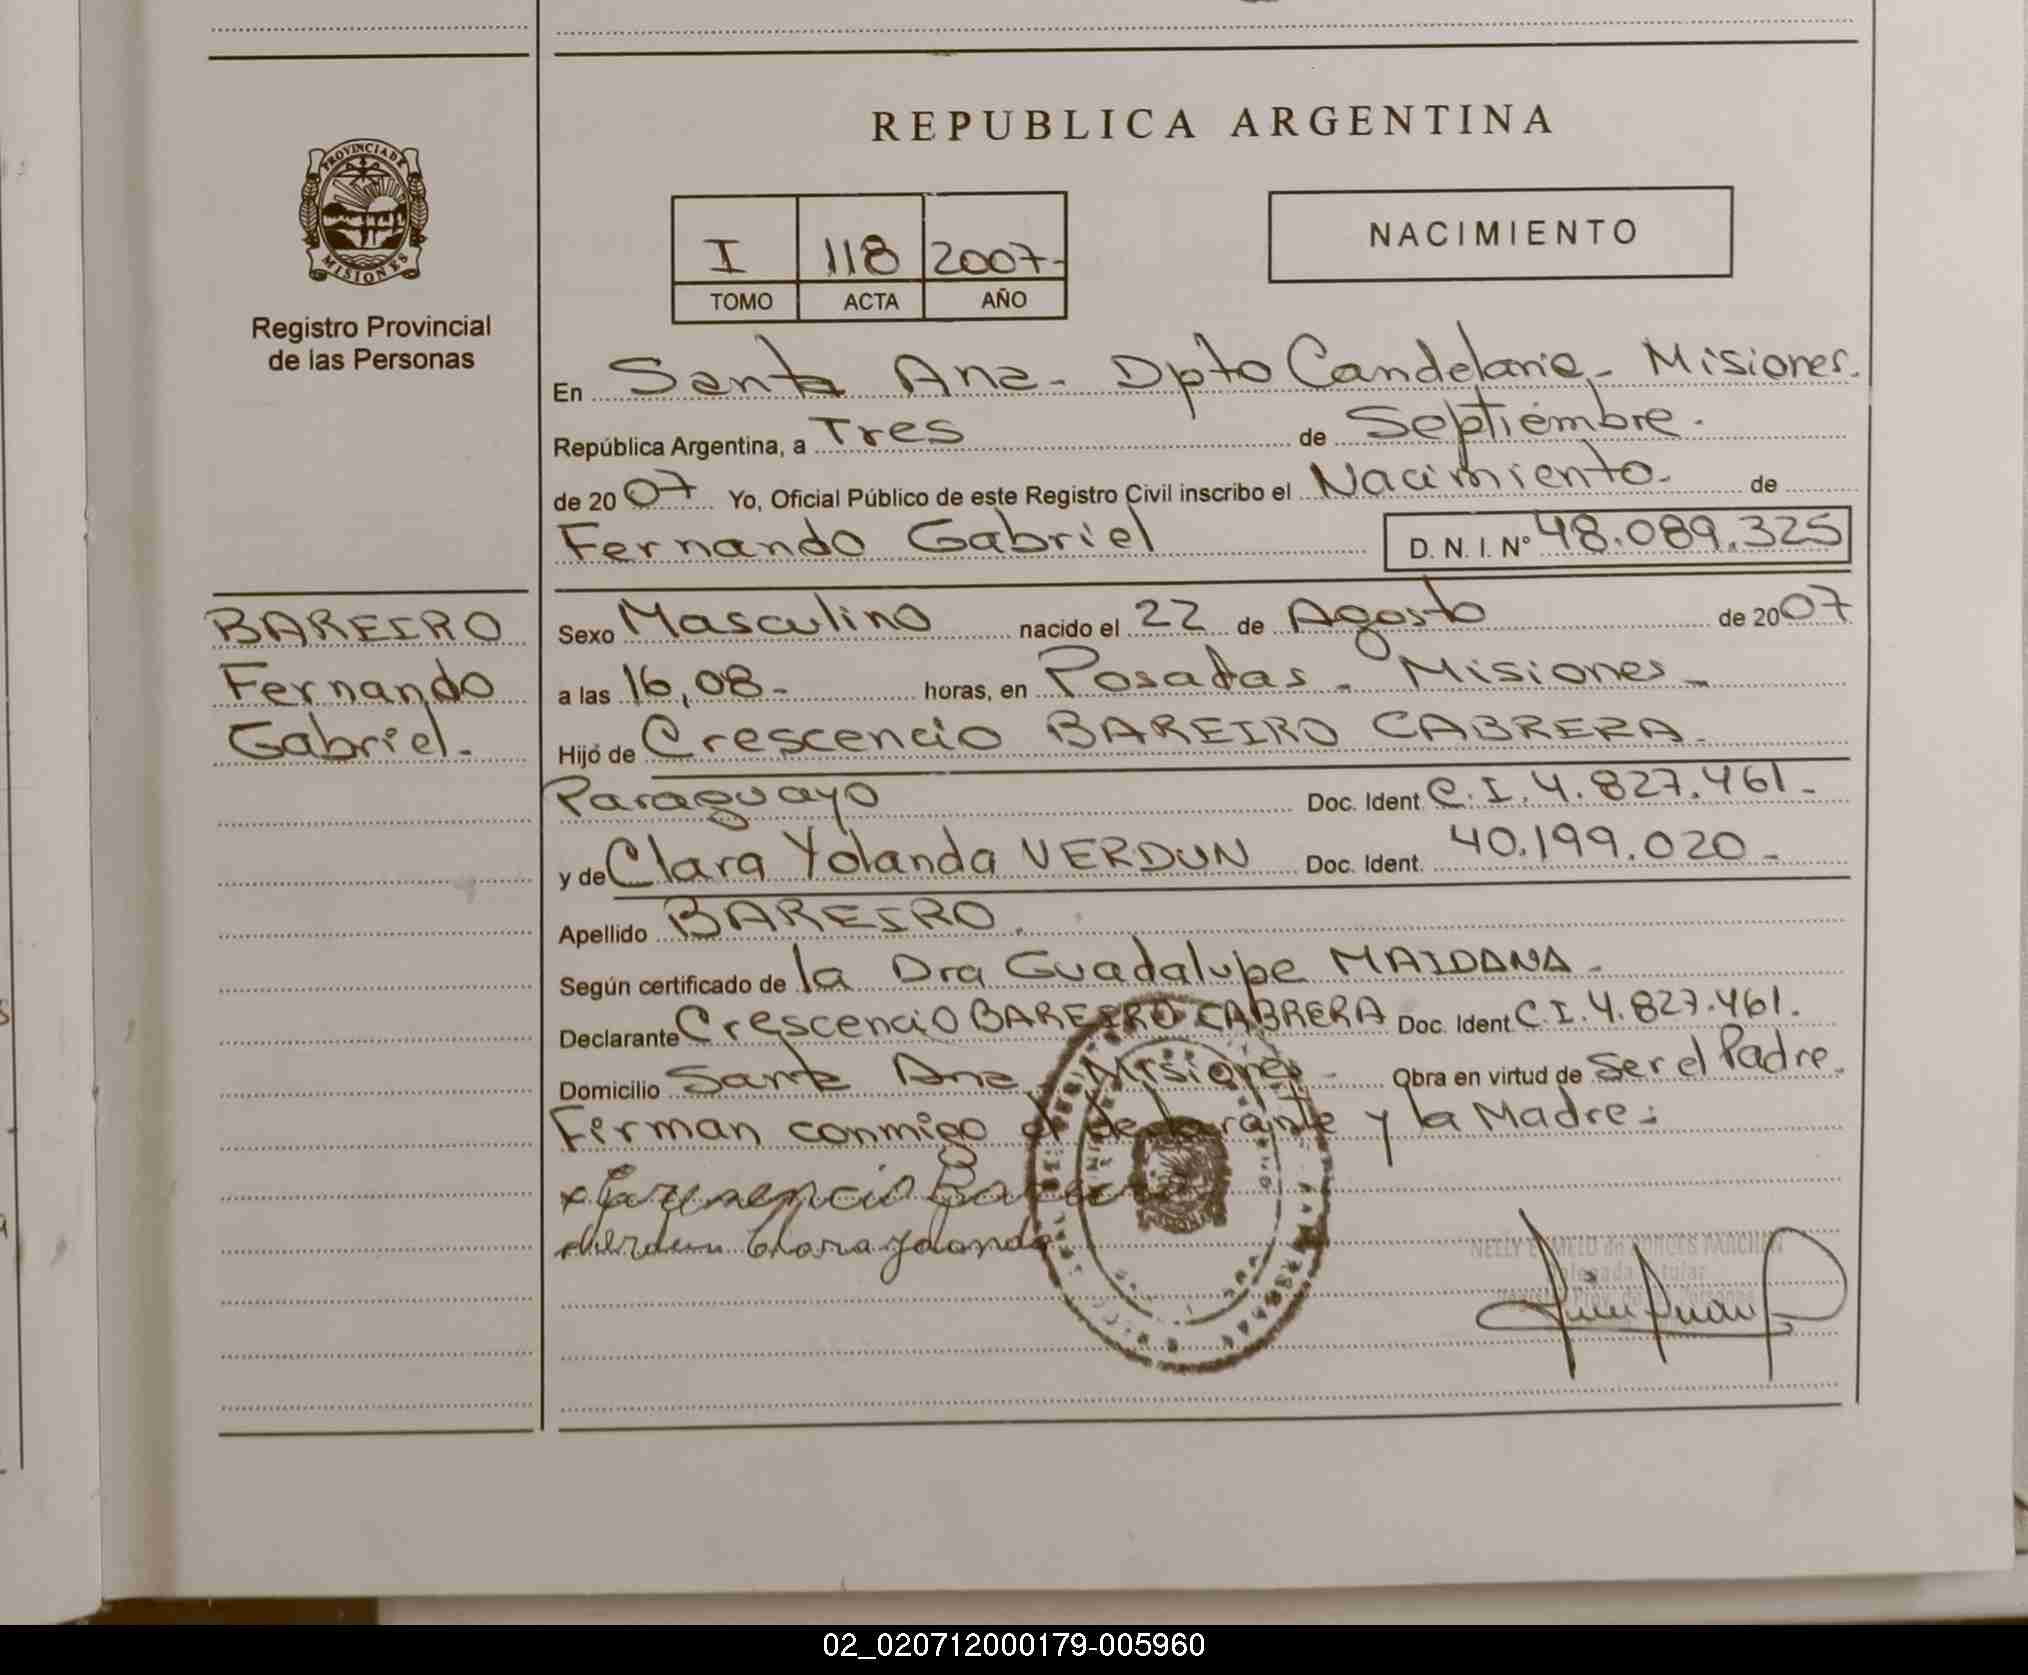 REPUBLICA ARGENTINA
PROVINCIA DE
MISIONES
Registro Provincial
de las Personas
I 118 2007-
TOMO ACTA AÑO
NACIMIENTO
En Santa Ana - Dpto Candelaria - Misiones.
República Argentina, a Tres de Septiembre.
de 2007 Yo, Oficial Público de este Registro Civil inscribo el Nacimiento. de
Fernando Gabriel D. N. I. N° 48.089.325
BAREIRO
Fernando
Gabriel.-
Sexo Masculino nacido el 22 de Agosto de 2007
a las 16,08- horas, en Posadas - Misiones -
Hijo de Crescencio BAREIRO CABRERA.
Paraguayo Doc. Ident. C.I. 4.827.461.-
y de Clara Yolanda VERDUN Doc. Ident. 40.199.020-
Apellido BAREIRO.
Según certificado de la Dra Guadalupe MAIDANA -
Declarante Crescencio BAREIRO CABRERA Doc. Ident. C I. 4.827.461.
Domicilio Santa Ana, Misiones - Obra en virtud de Ser el Padre.
Firman conmigo el declarante y la Madre:
Verdun Clara Yolanda
02_020712000179-005960